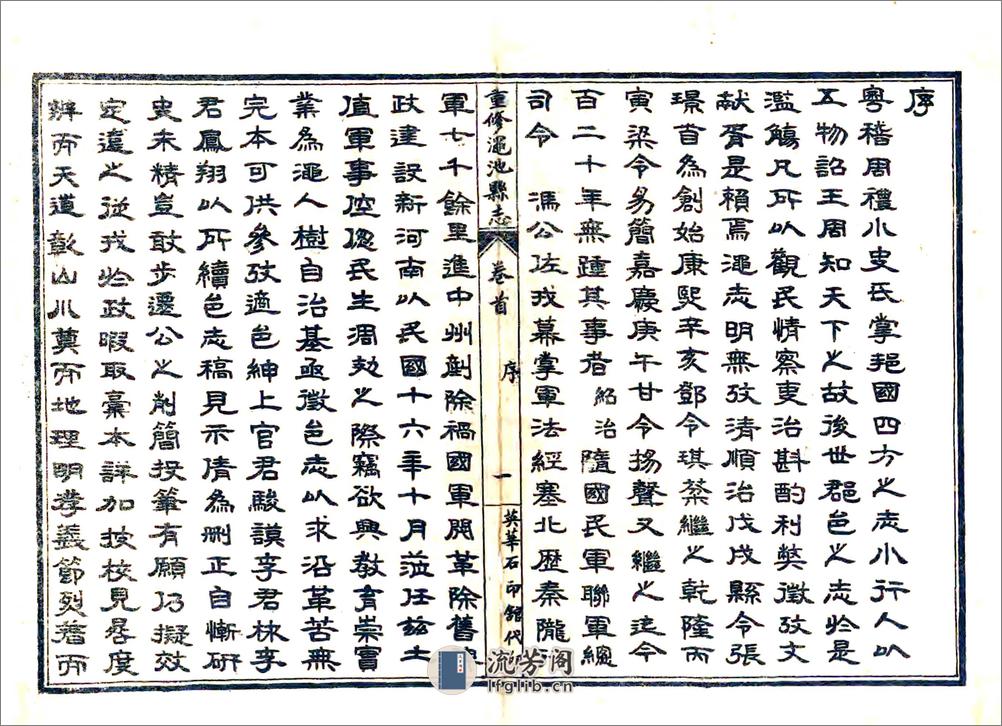 序
粵稽周禮小史氏掌邦國四方之志小行人以
五物詔王周知天下之故後世郡邑之志於是
濫觴凡所以觀民情察吏治斟酌利獘徵攷文
献胥是賴焉澠志明無攷清順治戊戌縣令張
璟首為創始康熙辛亥鄧令琪棻繼之乾隆丙
寅梁令易簡嘉慶庚午甘令揚聲又繼之迄今
百二十年無踵其事者紹治隨國民軍聯軍總
司令　馮公佐戎幕掌軍法經塞北歷秦隴
重修澠池縣志
卷首
序
一
英華石印館代
軍七千餘里進中州剷除禍國軍閥革除舊
政建設新河南以民國十六年十月涖任玆土
值軍事倥偬民生凋敝之際竊欲興教育崇實
業為澠人樹自治基亟徵邑志以求沿革苦無
完本可供參攷適邑紳上官君駿謨李君林李
君鳳翔以所續邑志稿見示倩為刪正自慚研
史未精豈敢步遷公之削簡投筆有願仍擬效
定遠之從戎於政暇取稾本詳加披校見晷度
辨而天道彰山川奠而地理明孝義節烈著而
流芳阁
lfglib.cn